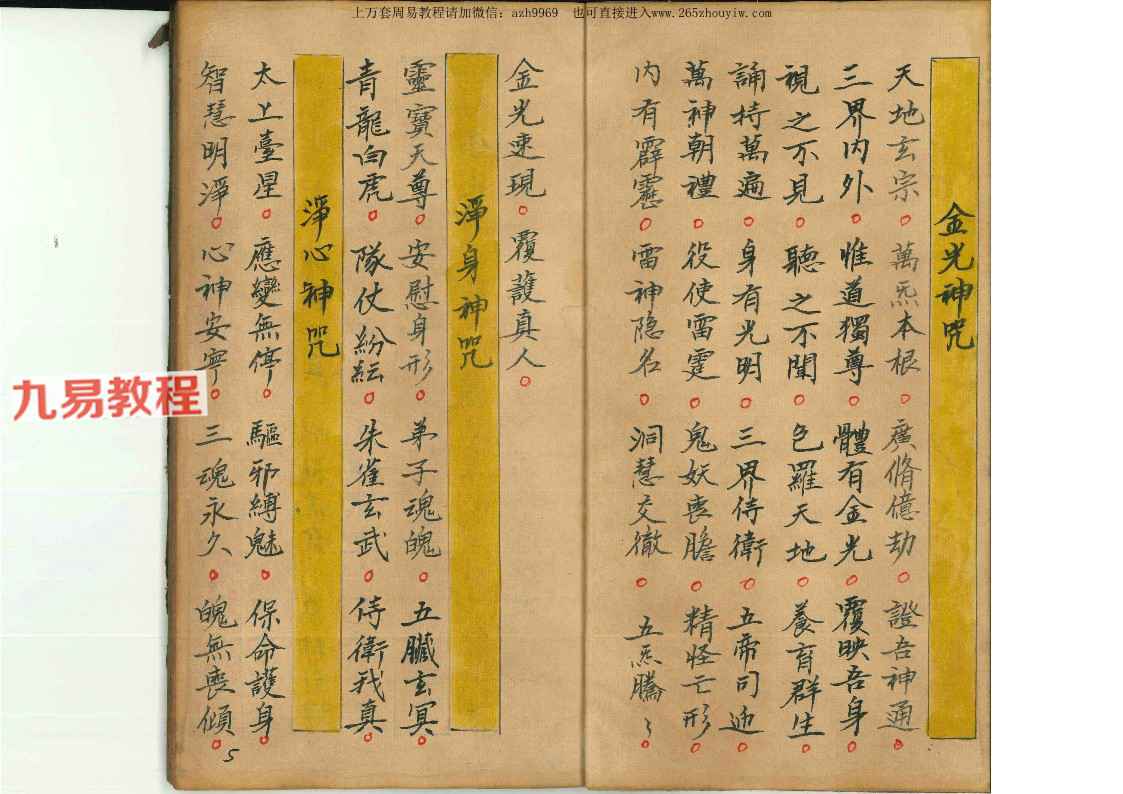 上万套周易教程请加微信：azh9969  也可直接进入www.265zhouyiw.com
金光神咒
天地玄宗。萬炁本根。廣脩億劫。證吾神通。
三界内外。惟道獨尊。體有金光。覆映吾身。
視之不見。聽之不聞。包羅天地。養育群生。
誦持萬遍。身有光明。三界侍衛。五帝司迎。
萬神朝禮。役使雷霆。鬼妖喪膽。精怪亡形。
内有霹靂。雷神隐名。洞慧交徹。五炁騰々。
金光速現。覆護真人。
淨身神咒
靈寶天尊。安慰身形。弟子魂魄。五臟玄冥。
青龍白虎。隊仗紛紜。朱雀玄武。侍衛我真。
淨心神咒
太上臺星。應變無停。驅邪縛魅。保命護身。
智慧明淨。心神安寧。三魂永久。魄無喪傾。
5
九易教程